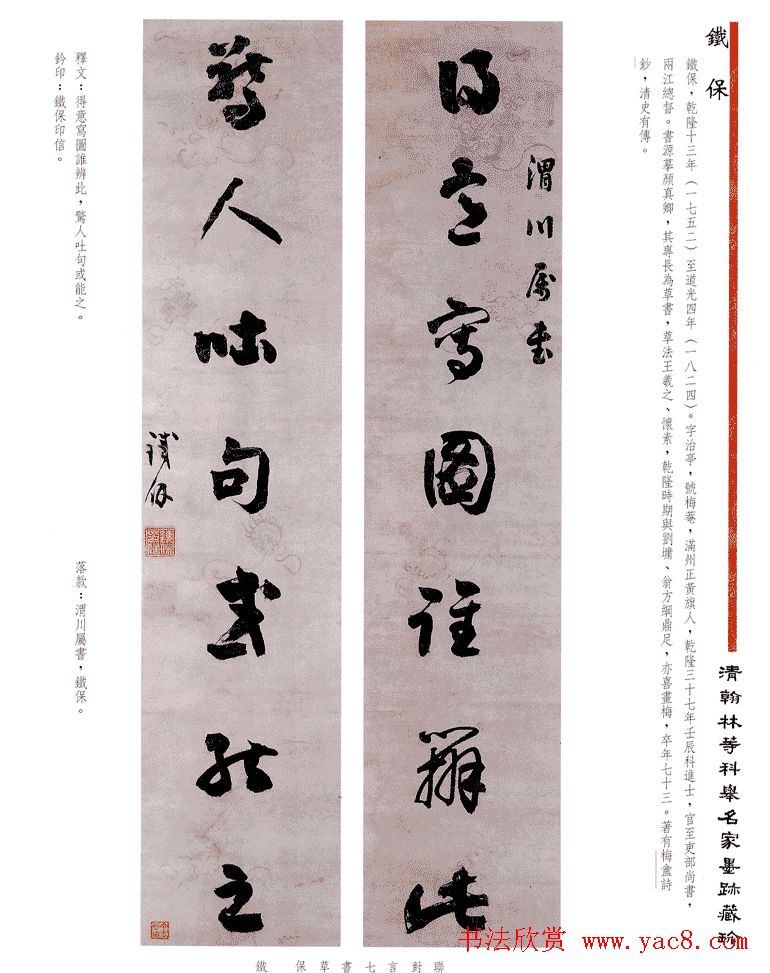 鐵保
鐵保，乾隆十三年（一七五二）至道光四年（一八二四）。字治亭，號梅菴，滿州正黃旗人，乾隆三十七年壬辰科進士，官至吏部尚書，
兩江總督。書源摹顏真卿，其專長為草書，草法王羲之、懷素，乾隆時期與劉墉、翁方綱鼎足，亦喜畫梅，卒年七十三。著有梅盦詩
鈔，清史有傳。
清翰林等科舉名家墨跡藏珍
渭川屬書
得意寫圖誰辨此
驚人吐句或能之
鐵保
釋文：得意寫圖誰辨此，驚人吐句或能之。
鈐印：鐵保印信。
落款：渭川屬書，鐵保。
鐵保草書七言對聯
书法欣赏 www.yac8.com